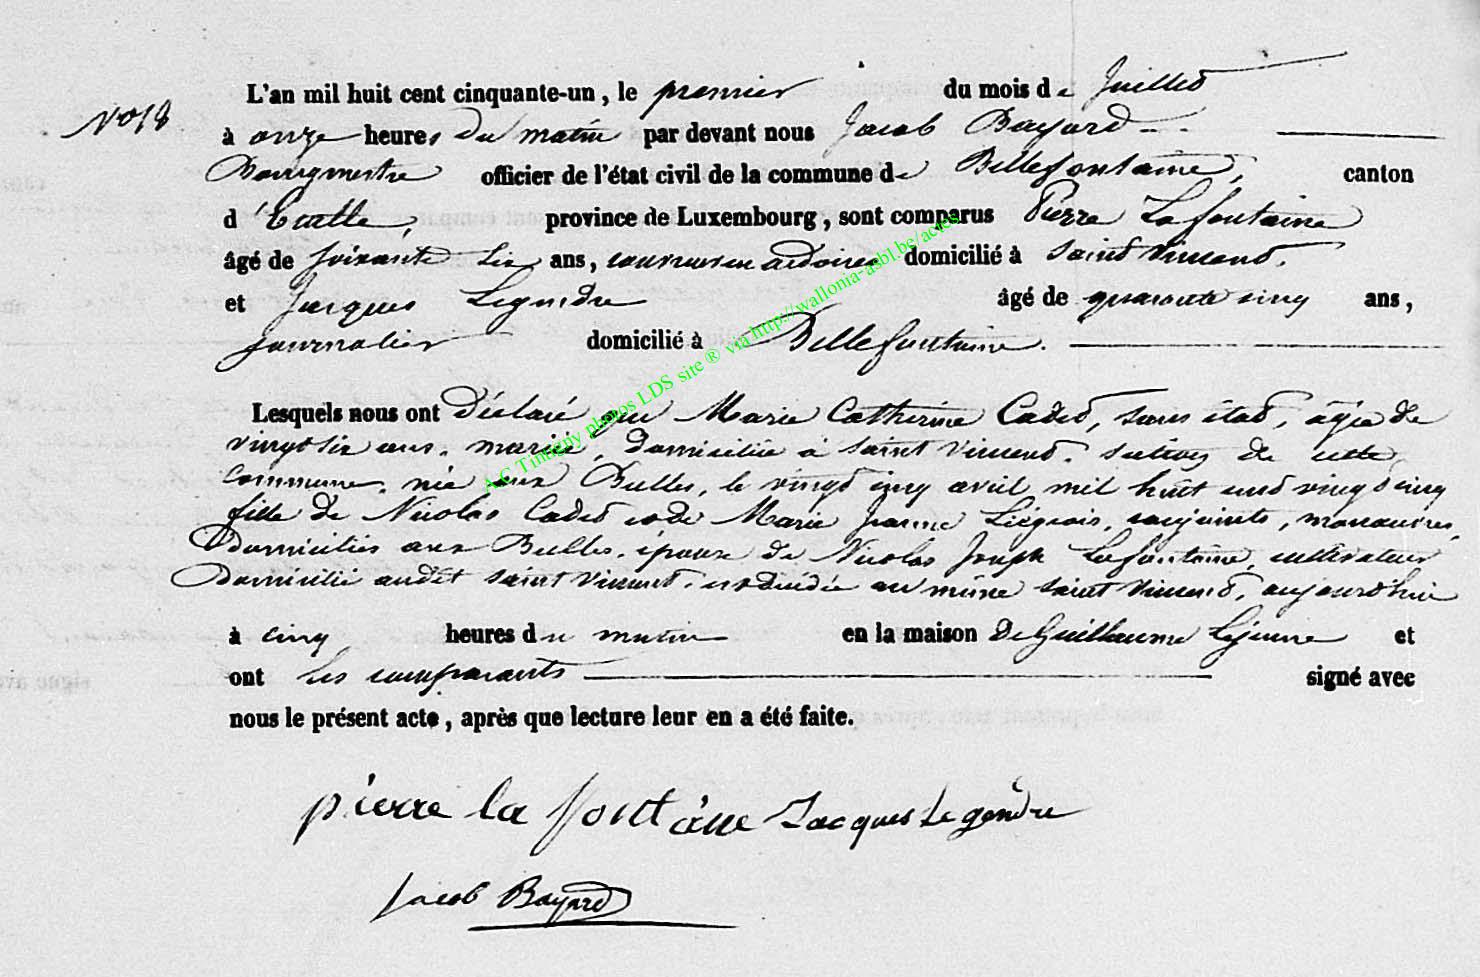 N° 18
L'an mil huit cent cinquante-un, le premier du mois de Juillet
à onze heures du matin par devant nous Jacob Bayard
Bourgmestre officier de l'état civil de la commune de Bellefontaine, canton
d'Etalle, province de Luxembourg, sont comparus Pierre Lafontaine
âgé de soixante six ans, couvreur en ardoises domicilié à Saint Vincent.
et Jacques Legendre âgé de quarante cinq ans,
journalier domicilié à Bellefontaine.
Lesquels nous ont déclaré que Marie Catherine Cadet, sans état, âgée de
vingt six ans, mariée, domiciliée à Saint Vincent, section de cette
commune, née aux Bulles, le vingt cinq avril mil huit cent vingt cinq
fille de Nicolas Cadet et de Marie Jeanne Liégeois, conjoints, manœuvres,
domiciliés aux Bulles, épouse de Nicolas Joseph Lafontaine, cultivateur
domicilié audit Saint Vincent, est décédée au même Saint Vincent, aujourd'hui
à cinq heures du matin en la maison de Guillaume Lejeune et
ont les comparants signé avec
nous le présent acte, après que lecture leur en a été faite.
pierre la fontaine Jacques Legendre
Jacob Bayard
A.C Tintigny photos LDS site ® via http://wallonia-asbl.be/actes